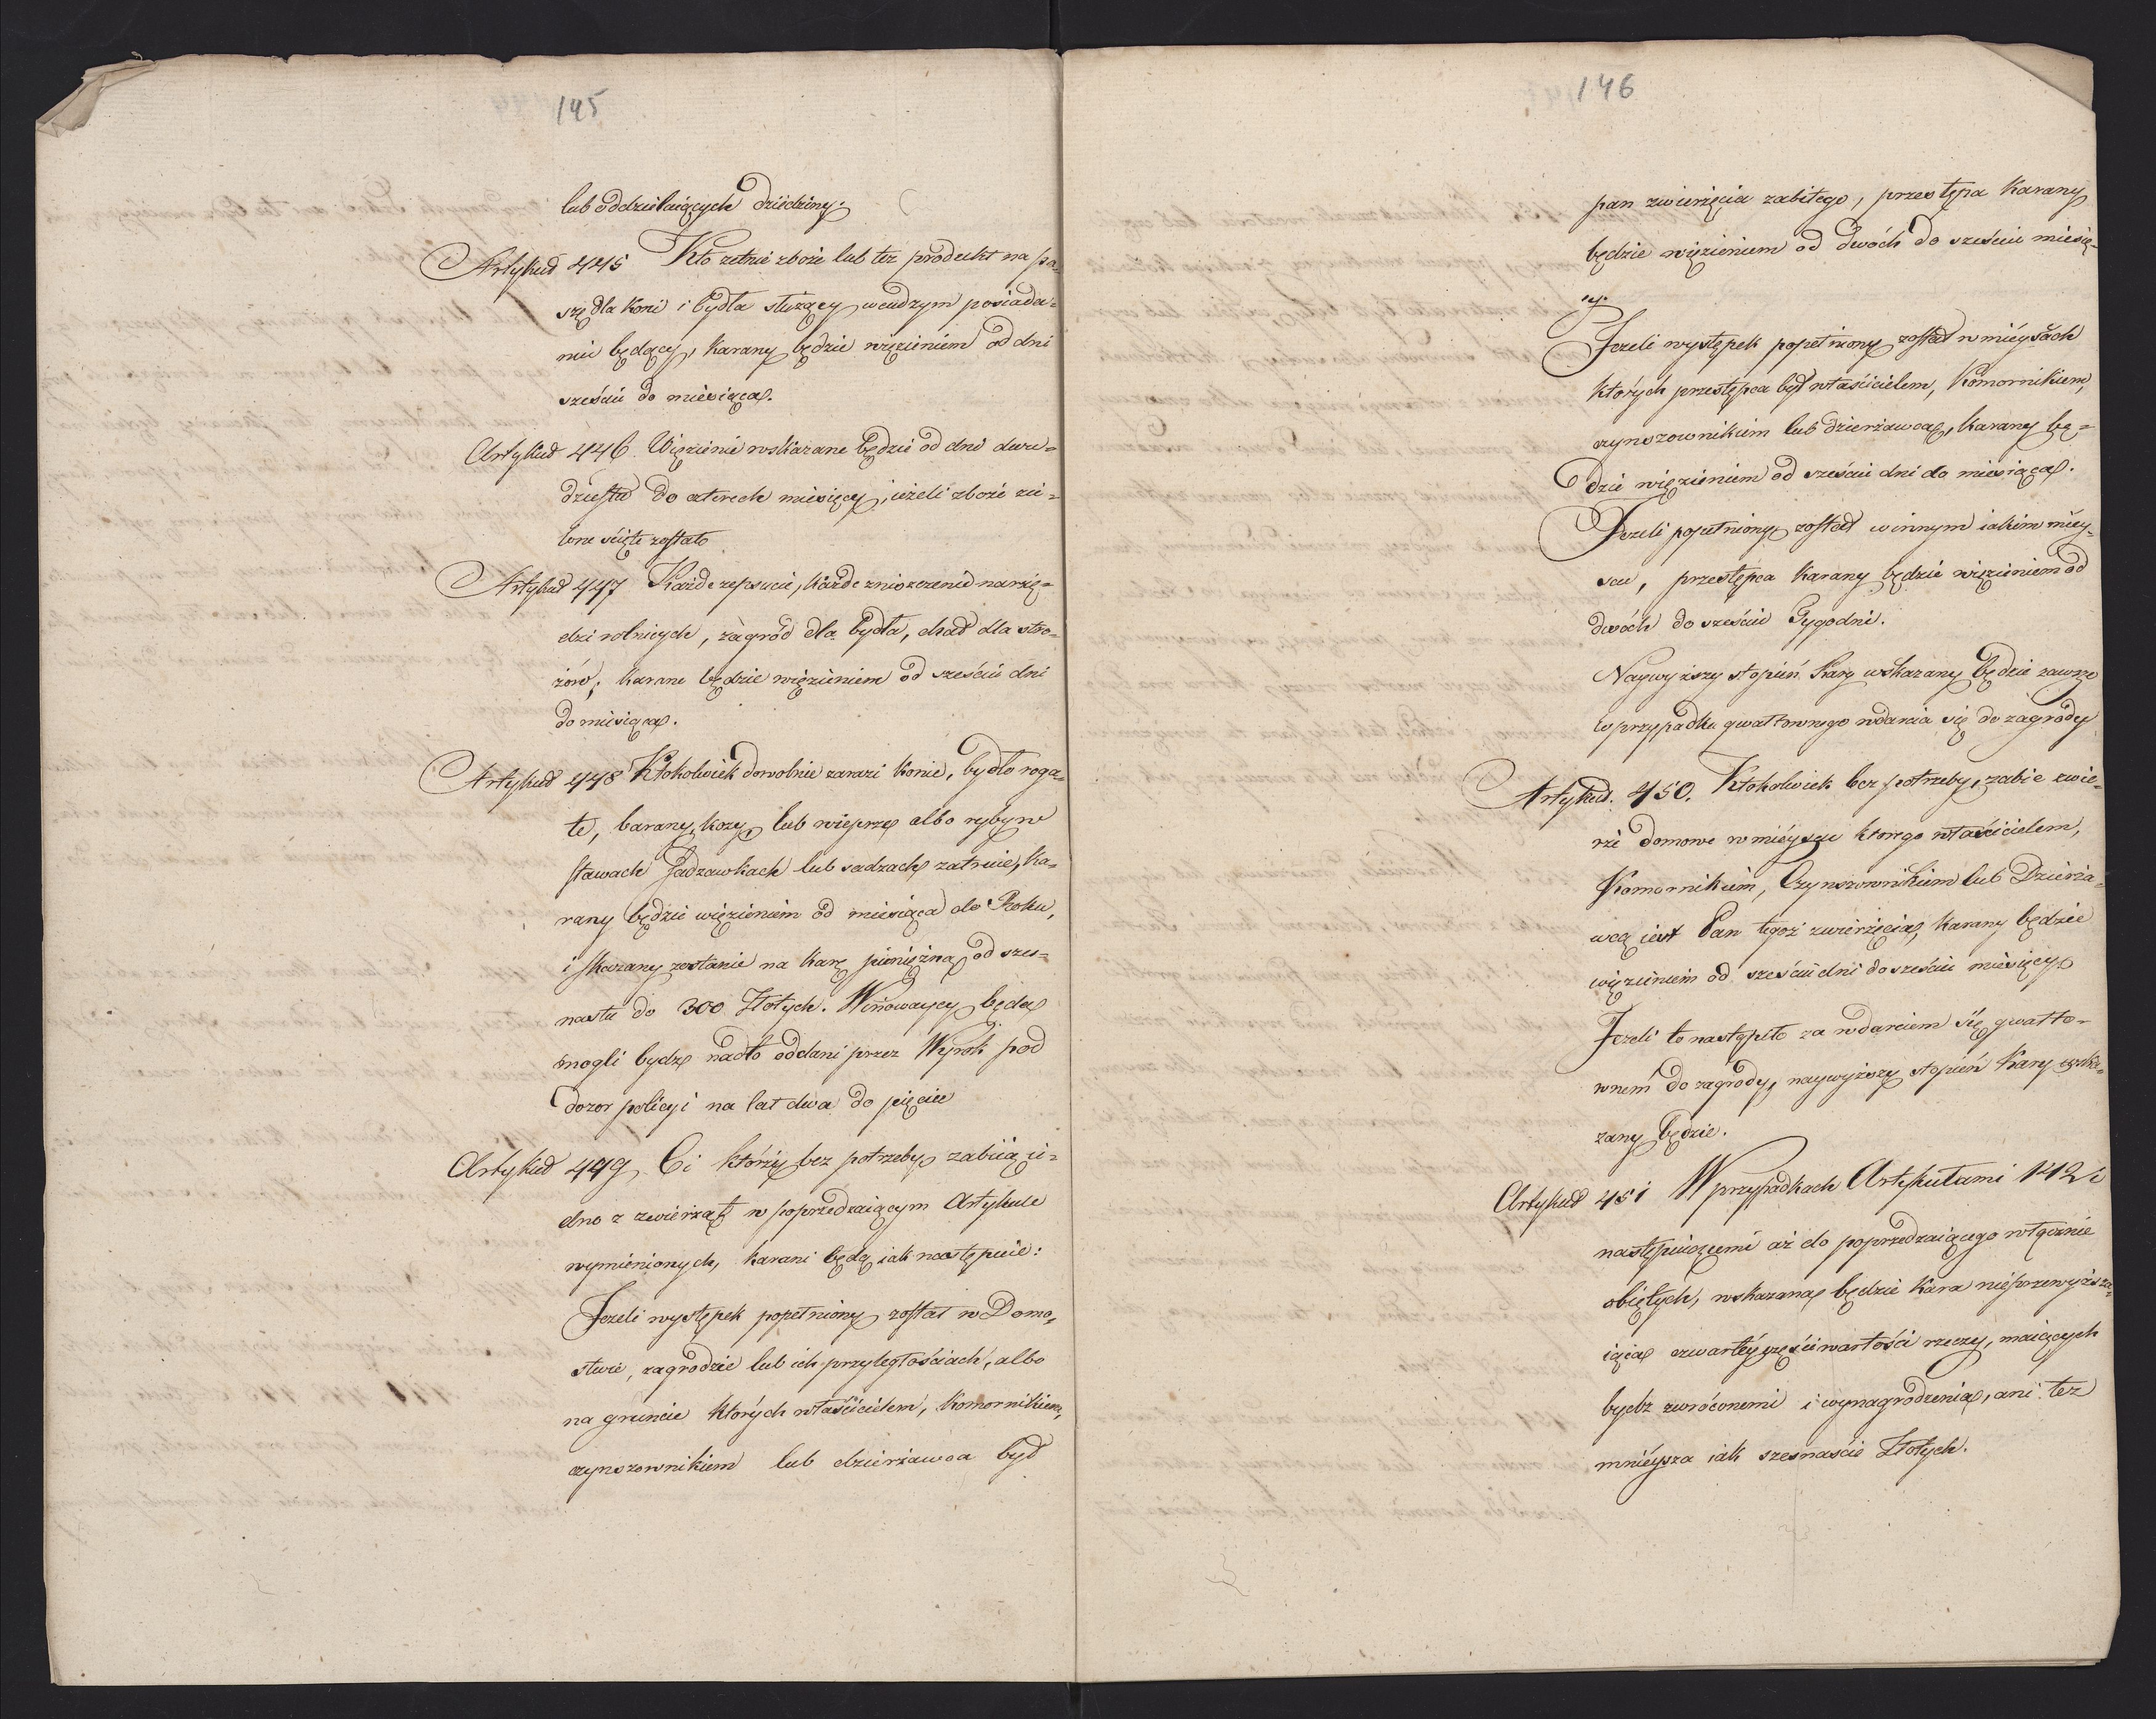 145
lub oddzielaiących dziedziny.
Artykuł 445 Kto zetnie zboże lub też produkt na pa=
szę dla koni i bydła służący w cudzym posiada=
niu będący, karany będzie więzieniem od dni
sześciu do miesiąca.
Artykuł 446. Więzienie wskazane będzie od dni dwu=
dziestu do czterech miesięcy, ieżeli zboże zie=
lone ścięte zostało
Artykuł 447 Każde zepsucie, każde zniszczenie narzę=
dzi rolniczych, zagród dla bydła, chad dla stro=
żów, karane będzie więzieniem od sześciu dni
do miesiąca.
Artykuł 448 Ktokolwiek dowolnie zarazi konie, bydło roga=
te, barany, kozy, lub wieprze albo ryby w
stawach Sadzawkach lub sadzach zatruie, ka=
rany będzie więzieniem od miesiąca do Roku,
i skazany zostanie na karę pieniężną od szes=
nastu do 300 Złotych. Winowaycy będą
mogli bydź nadto oddani przez Wyrok pod
dozor policyi na lat dwa do pięciu
Artykuł 449. Ci którzy bez potrzeby zabiią ie=
dno z zwierząt w poprzedzaiącym Artykule
wymienionych, karani będą iak następuie:
Jeżeli występek popełniony został w Domo=
stwie, zagrodzie lub ich przyległościach, albo
na gruncie których właścicielem, Komornikiem,
czynszownikiem lub dzierżawca był
146
pan zwierzęcia zabitego, przestępca karany
będzie więzieniem od dwóch do sześciu miesię=
cy.
Jeżeli występek popełniony został w mieyscach
których przestępca był właścicielem, Komornikiem,
czynszownikiem lub dzierżawcą, karany bę=
dzie więzieniem od sześciu dni do miesiąca.
Jeżeli popełniony został w innym iakim miey=
scu, przestępca karany będzie więzieniem od
dwóch do sześciu Tygodni.
Naywyższy stopień Kary wskazany będzie zawsze
w przypadku gwałtownego wdarcia się do zagrody
Artykuł. 450. Ktokolwiek bez potrzeby, zabie zwie=
rze domowe w mieyscu ktorego właścicielem,
Komornikiem, Czynszownikiem lub Dzierża=
wcą iest Pan tegoż zwierzęcia, karany będzie
więzieniem od sześciu dni do sześciu miesięcy.
Jeżeli to nastąpiło za wdarciem się gwałto=
wnem do zagrody, naywyższy stopień kary wska=
zany będzie.
Artykuł 451 W przypadkach Artykułami 142 i
następuiącemi aż do poprzedzaiącego włącznie
obiętych, wskazaną będzie kara nieprzewyższa=
iąca czwartéy części wartości rzeczy, maiących
bydź zwróconemi i wynagrodzenia, ani też
mnieysza iak szesnaście Złotych.